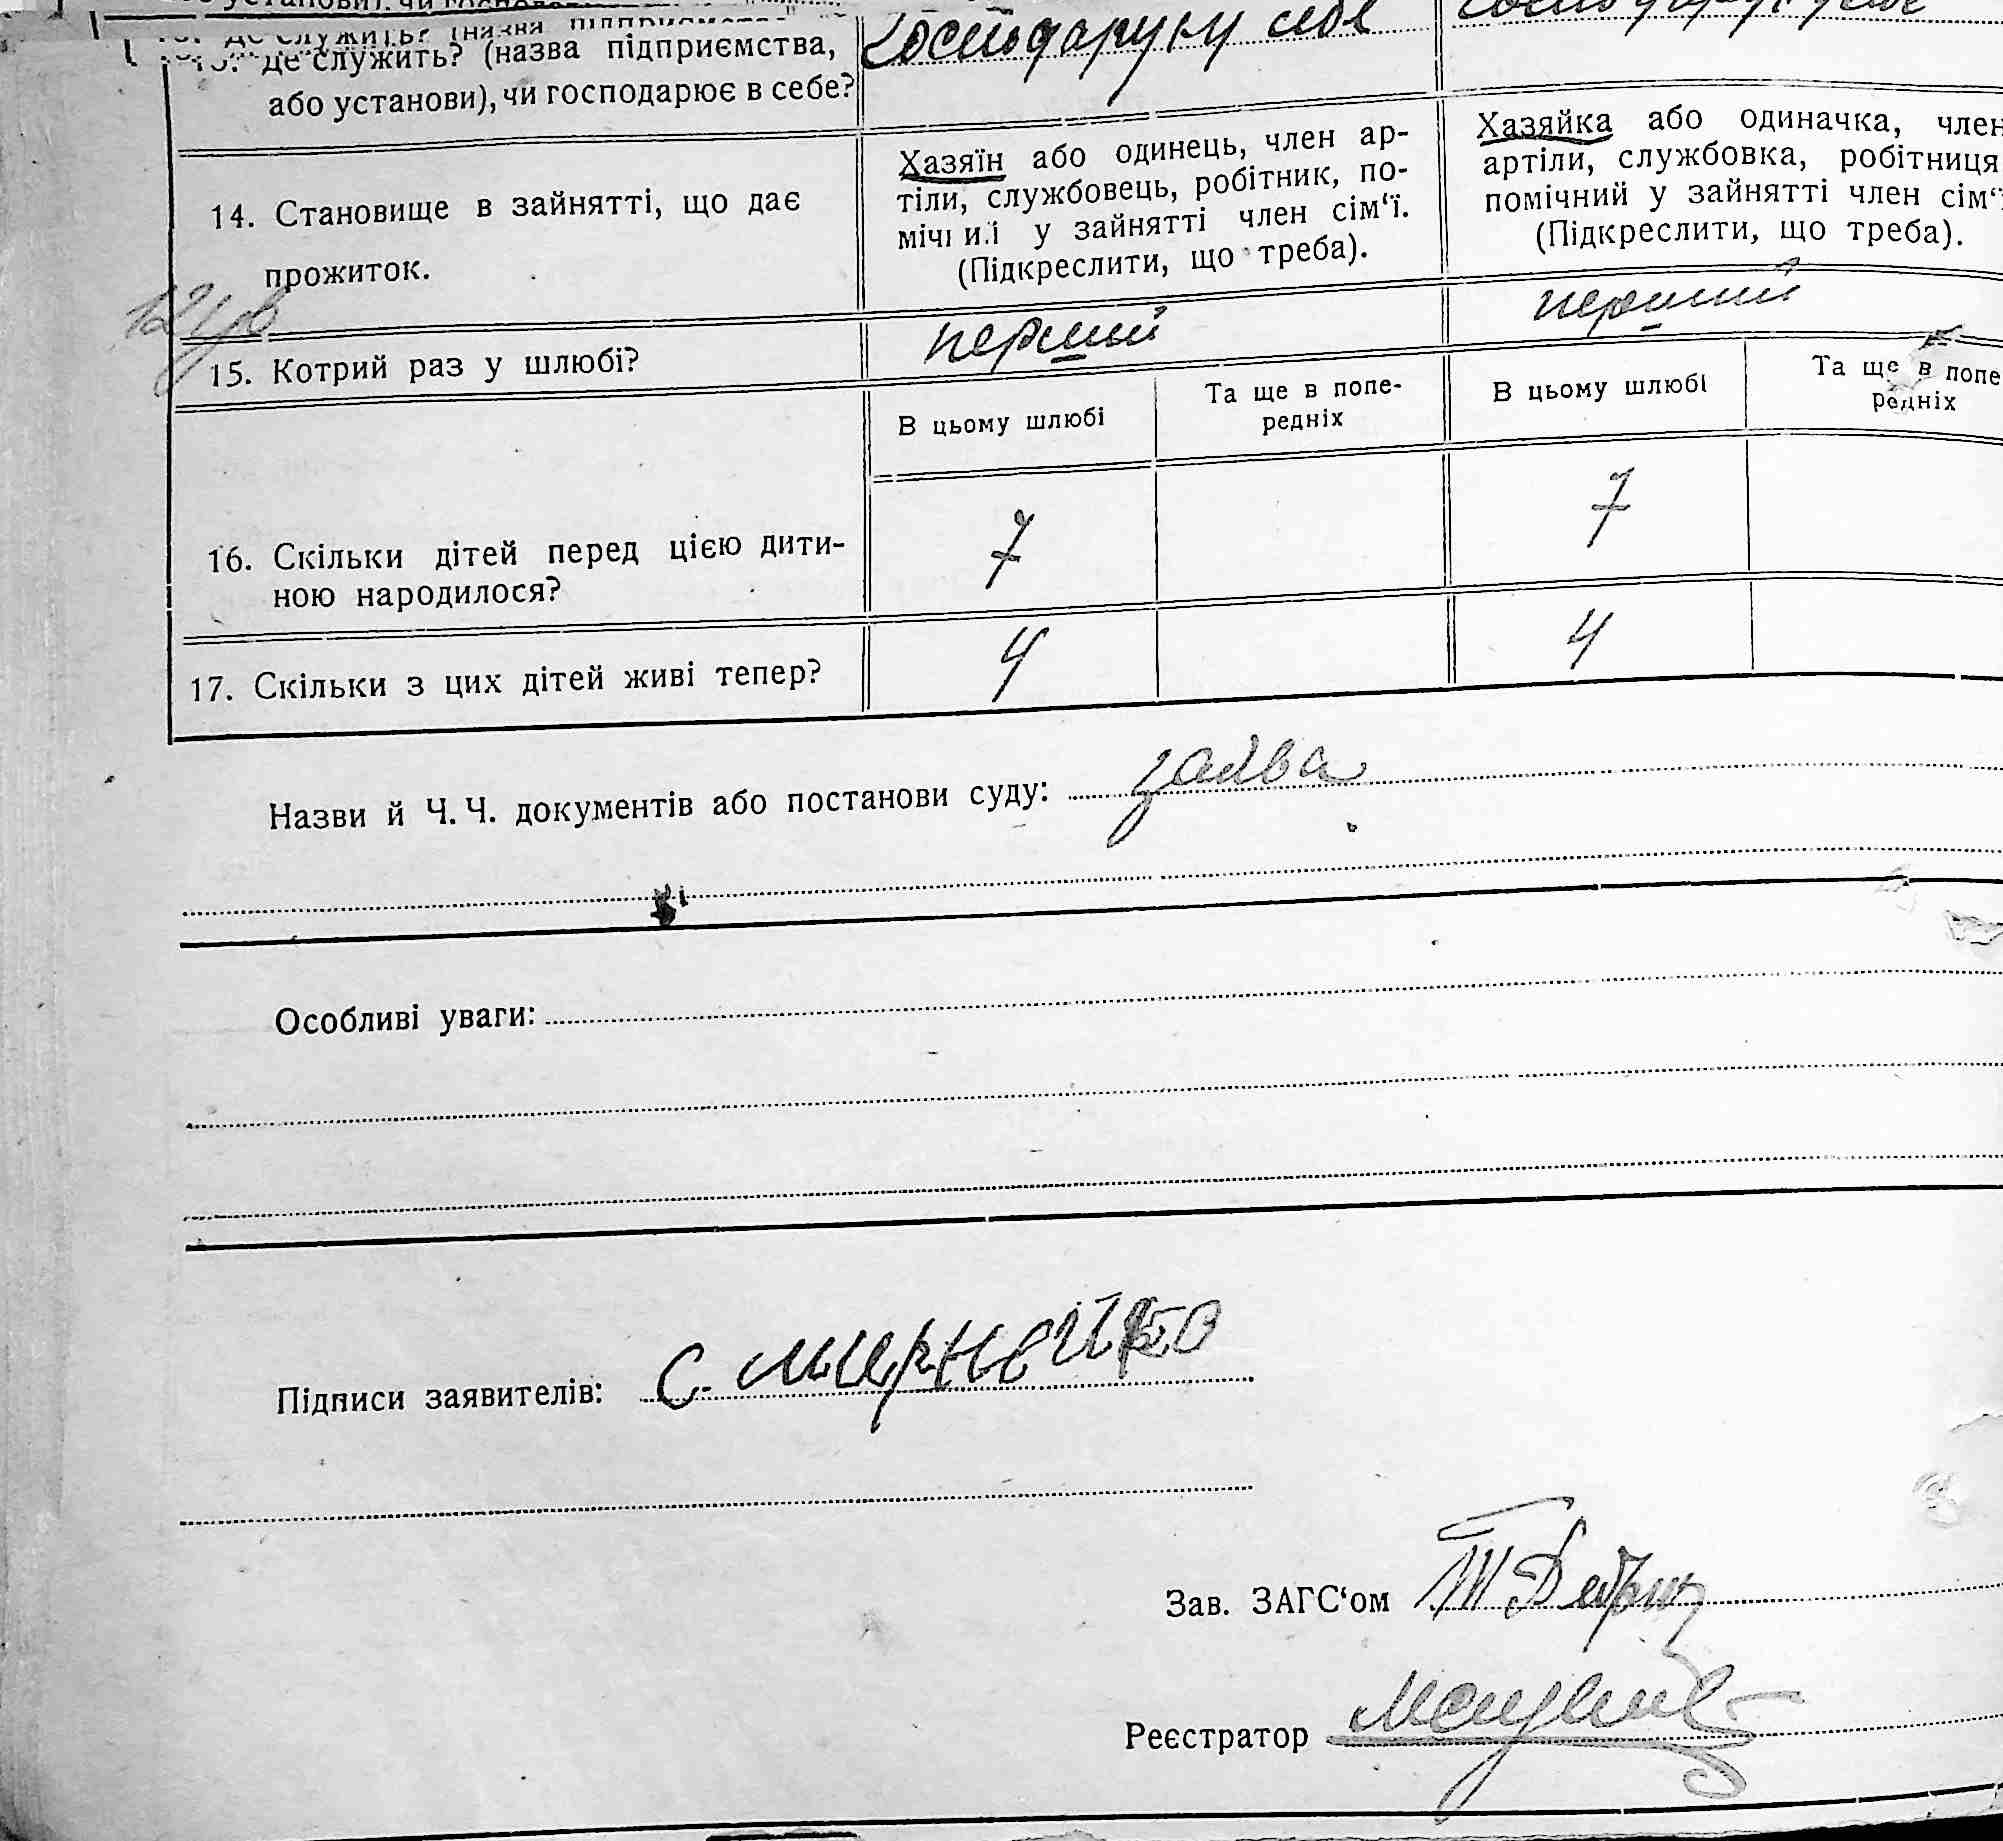 де служить? (назва підприємства,
або установи), чи господарює в себе?
Господарує у себе
14. Становище в зайнятті, що дає
прожиток.
Хазяїн або одинець, член ар-
тіли, службовець, робітник, по-
мічний у зайнятті член сім‘ї.
(Підкреслити, що треба).
Хазяйка або одиначка, член
артіли, службовка, робітниця
помічний у зайнятті член сім‘
(Підкреслити, що треба).
15. Котрий раз у шлюбі?
перший
перший
В цьому шлюбі
Та ще в попе-
редніх
В цьому шлюбі
Та ще в попе
редніх
16. Скільки дітей перед цією дити-
ною народилося?
7
7
17. Скільки з цих дітей живі тепер?
4
4
Назви й Ч. Ч. документів або постанови суду: заява
Особливі уваги:
Підписи заявителів:
Зав. ЗАГС‘ом
Реєстратор